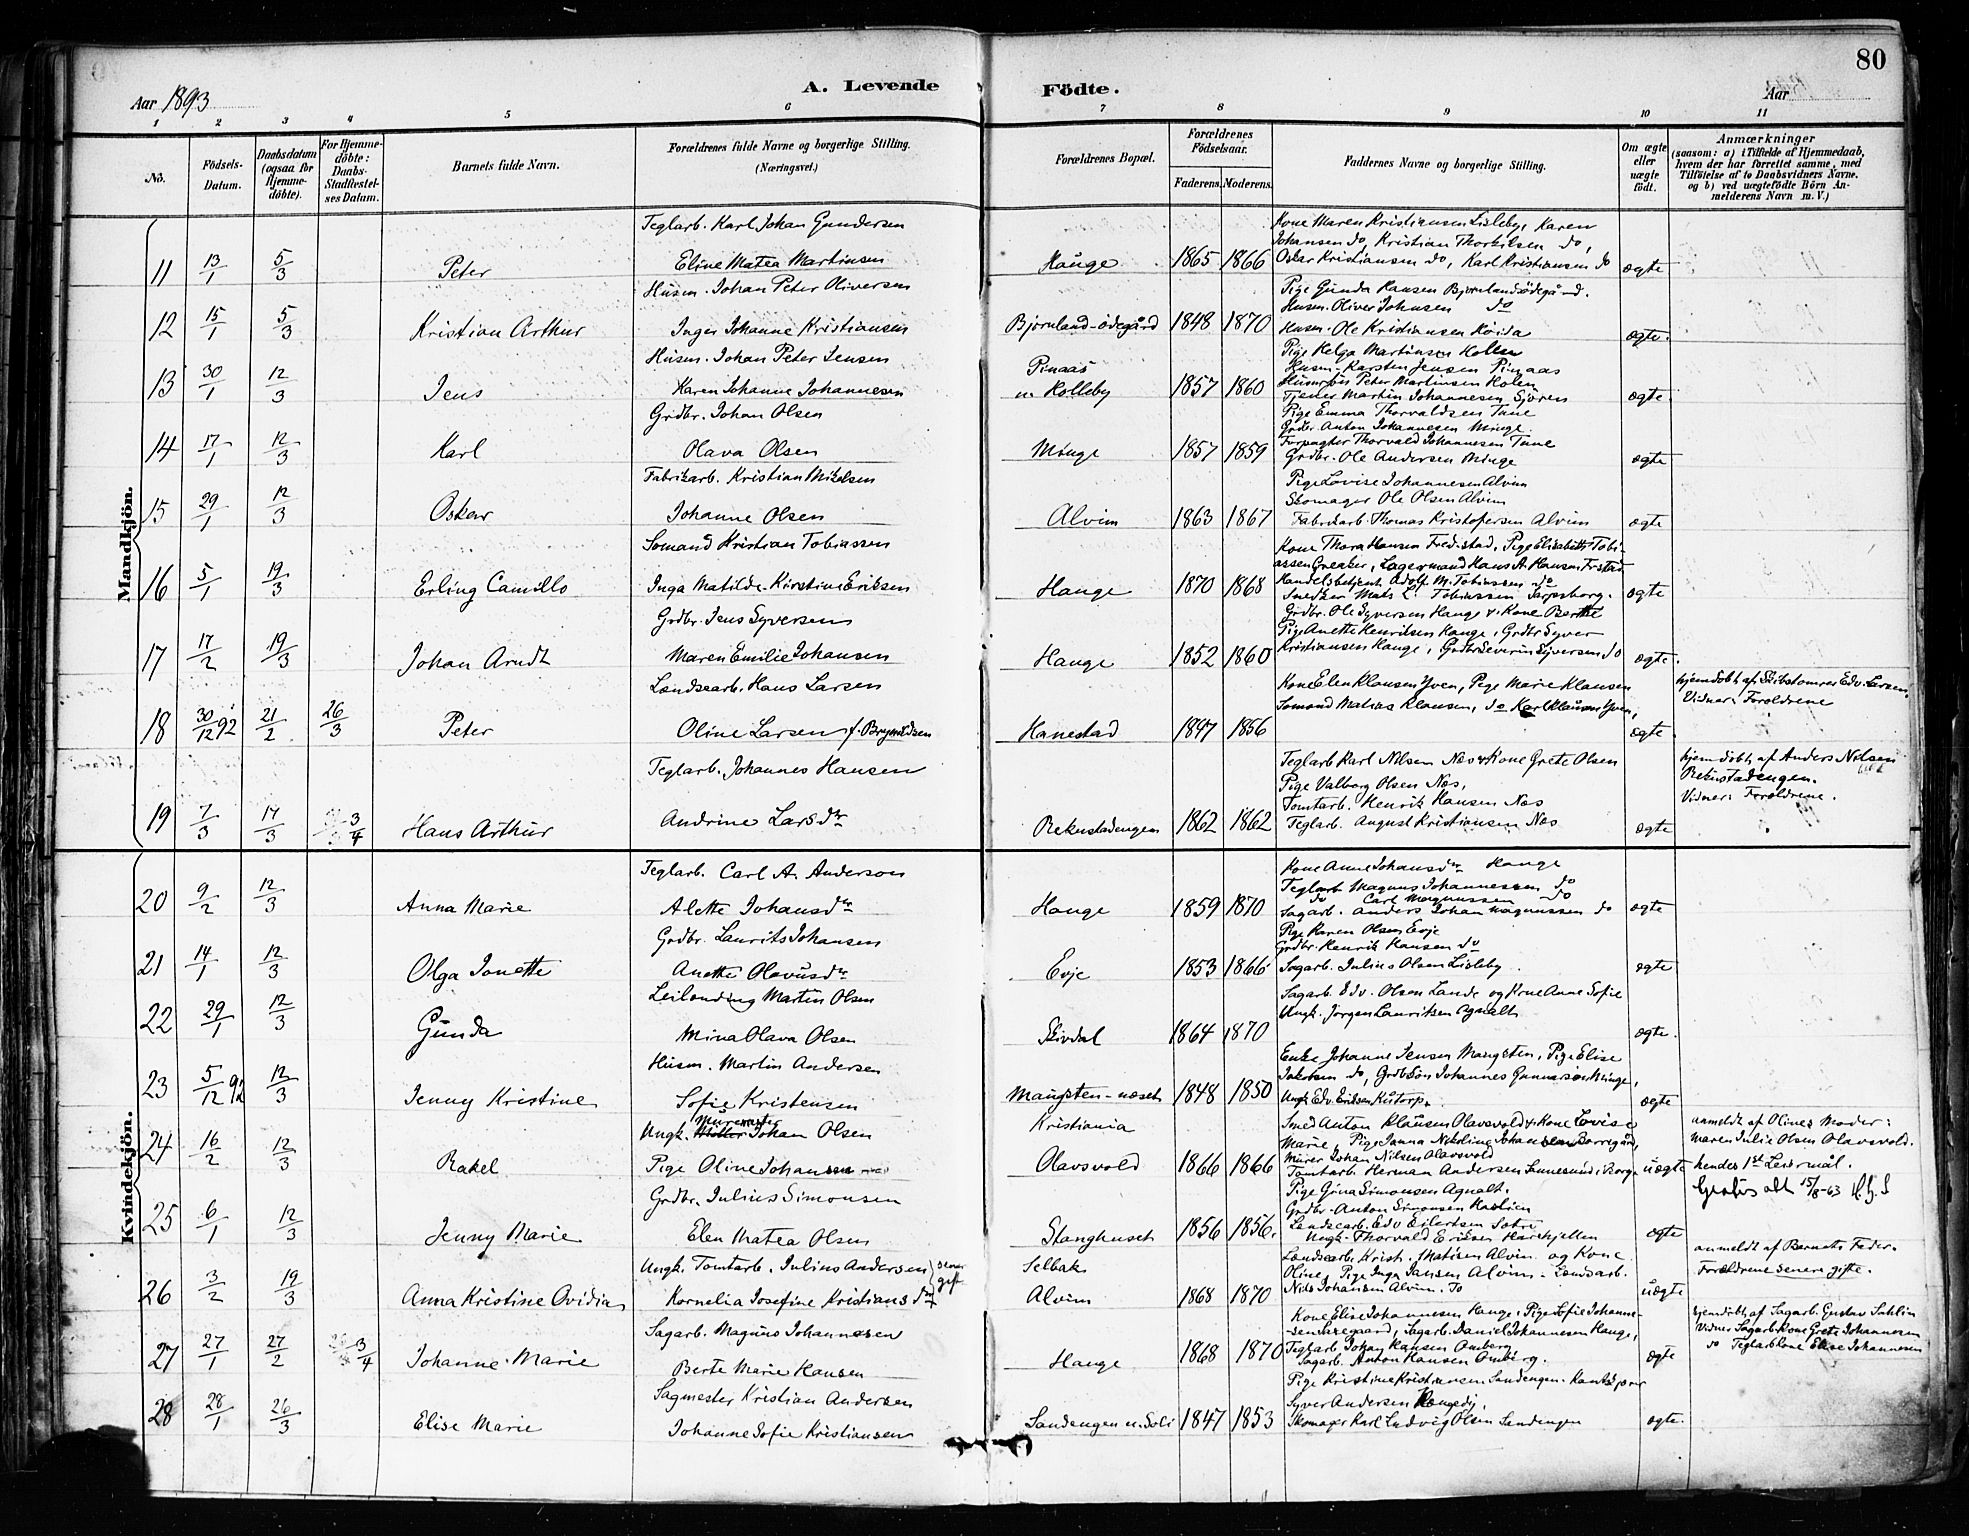 80
Aar 1893
A. Levende Födte.
Aar
1 2 3 4 5 6 7 8 9 10 11
No.
Födsels-Datum.
Daabsdatum (ogsaa for Hjemme-döbte).
For Hjemme-döbte: Daabs-Stadfæstelses Datum.
Barnets fulde Navn.
Forældrenes fulde Navne og borgerlige Stilling. (Næringsvei.)
Forældrenes Bopæl.
Forældrenes Födselsaar.
Faderens. Moderens.
Faddernes Navne og borgerlige Stilling.
Om ægte eller uægte født.
Anmærkninger
(saasom: a) i Tilfælde af Hjemmedaab, hvem der har forrettet samme, med Tilföielse af to Daabsvidners Navne, og b) ved uægtefödte Börn Anmelderens Navn m. V.)
Mandkjön.
11 13/1 5/3 Peter
Teglarb. Karl Johan Gundersen
Eline Matea Martinsen
Hauge 1865 1866
Kone Maren Kristiansen Lisleby, Karen
Johansen do, Kristian Thorkilsen do,
Oskar Kristiansen do, Karl Kristiansen do
ægte
12 15/1 5/3 Kristian Arthur
Husm. Johan Peter Oliversen
Inger Johanne Kristiansen
Bjørnland-ødegård 1848 1870
Pige Gunda Hansen Bjørnlandsödegård.
Husm. Oliver Johnsen do
Husm. Ole Kristiansen
ægte.
13 30/1 12/3 Jens
Husm. Johan Peter Jensen
Karen Johanne Johannesen
Pinaas
u. Kolleby 1857 1860
Pige Helga Martinsen Holen
Husm. Karsten Jensen Pinaas
Husm. Peter Martinsen Holen
Tjener Martin Johannesen
ægte.
14 17/1 12/3 Karl
Grdbr. Johan Olsen
Olava Olsen
Minge 1857 1859
Pige Emma Thorvaldsen Tune
Grdbr. Anton Johannesen Minge.
Forpagter Thorvald Johannesen Tune
Grdbr. Ole Andersen Minge
ægte
15 29/1 12/3 Oskar
Fabrikarb. Kristian Mikelsen
Johanne Olsen
Alvim 1863 1867
Pige Lovise Johannesen Alvim
Skomager Ole Olsen Alvim
Fabrikarb. Thomas Kristofersen Alvim
ægte
16 5/1 19/3 Erling Camillo
Sømand Kristian Tobiassen
Inga Matilde Kirstine Eriksen
Hauge 1870 1868
Kone Thora Hansen Fredrikstad, Pige Elisabeth Tobi-
assen Greaker, Lagermand Hans A. Hansen Frstad
Handelsbetjent Adolf M. Tobiassen do
Snedker Mats L. Tobiassen Sarpsborg.
ægte
17 17/2 19/3 Johan Arndt
Grdbr. Jens Syversen
Maren Emilie Johansen
Hauge 1852 1860
Grdbr. Ole Syversen Hauge & Kone Berthe
Pige Anette Henriksen Hauge, Grdbr Syver
Kristiansen Hauge, Grdbr Severin Syversen do
ægte.
18 30/12 92 21/2 26/3 Peter
Landsearb. Hans Larsen
Oline Larsen f. Brynildsen
Hanestad 1847 1856
Kone Elen Klausen Yven, Pige Marie Klausen
Sømand Matias Klausen, do Karl Klausen Yven,
ægte.
hjemdøbt af Skibstømrer Edv. Larsen.
Vidner: Forældrene
19 7/3 14/3 3/4 Hans Arthur
Teglarb. Johannes Hansen
Andrine Larsdr
Rekustadengen 1862 1862
Teglarb Karl Nilsen Næs & Kone Grete Olsen
Pige Valborg Olsen Næs,
Tomtarb. Henrik Hansen Næs
Teglarb. August Kristiansen Næs
ægte
hjemdøbt af Anders Nilsen
Rekustadengen.
Vidner: Forældrene.
Kvindekjön.
20 9/2 12/3 Anna Marie
Teglarb. Carl A. Anderson
Alette Johansdr
Hauge 1859 1870
Kone Anne Johansdr Hauge
Teglarb Magnus Johannessen do
do Carl Magnussen do
Sagarb. Anders Johan Magnussen do
ægte
21 14/1 12/3 Olga Jonette
Grdbr. Laurits Johansen
Anette Olavusdr
Evje 1853 1866
Pige Karen Olsen Evje
Grdbr. Henrik Hansen do
Sagarb. Julius Olsen Lisleby.
ægte
22 29/1 12/3 Gunda
Leilending Martin Olsen
Mina Olava Olsen
Skivdal 1864 1870
Sagarb. Edv. Olsen Lande og Kone Anne Sofie
Ungk. Jörgen Lauritsen Agnalt
ægte.
23 5/12 92 12/3 Jenny Kristine
Husm. Martin Andersen
Sofie Kristensen
Maugsten-næset 1848 1850
Enke Johanne Jensen Maugsten, Pige Elise
Jakobsen do, Grdb.Søn Johannes Gunnarsön Minge,
Ungk. Edv. Eriksen Kustorp.
ægte
24 16/2 12/3 Rakel
Muremester
Ungk. Johan Olsen
Pige Oline Johansen
Kristiania
Olavsvold 1866 1866
Smed Anton Klausen Olavsvold & Kone Lovise
Marie, Pige Janna Nikoline Johansen Borregård,
Murer Johan Nilsen Olavsvold
Tomtarb. Herman Andersen Sannesund i Borge
uægte
anmeldt af Olines Moder:
Maren Julie Olsen Olavsvold.
hendes 1ste Leiermål.
Gratis att 15/8-63
25 6/1 12/3 Jenny Marie
Grdbr. Julius Simonsen
Elen Matea Olsen
Stanghuset 1856 1856.
Pige Gina Simonsen Agnalt.
Grdbr. Anton Simonsen
Landsearb. Edv Eilertsen
Ungk. Thorvald Eriksen
ægte
26 3/2 19/3 Anna Kristine Ovidia
Ungk. Tomtarb. Julius Andersen } senere
Kornelia Josefine Kristiansdr } gift
Selbak
Alvim 1868 1870
Landsearb. Krist. Matisen Alvim og Kone
Oline, Pige Inga Jansen Alvim. Landsarb.
Nils Johansen Alvim.
uægte
anmeldt af Barnets Fader.
Forældrene senere gifte.
27 27/1 27/2 3/4 Johanne Marie
Sagarb. Magnus Johannesen
Berte Marie Hansen
Hauge 1868 1870
Kone Elise Johannesen Hauge, Pige Sofie Johanne-
sen, Sagarb. Daniel Johannesen Hauge,
Teglarb. Johan Hansen Omberg
Sagarb. Anton Hansen Omberg.
ægte
hjemdøbt af Sagarb. Gustav Sahlin
Vidner Sagarb.kone Grete Johannesen
do Teglarb.kone Elise Johannesen
28 28/1 26/3 Elise Marie
Sagmester Kristian Andersen
Johanne Sofie Kristiansen
Sandengen u. Soli 1847 1853
Pige Kristine Kristiansen Sandengen.
Syver Andersen
Skomager Karl Ludvig Olsen Sandengen
ægte.